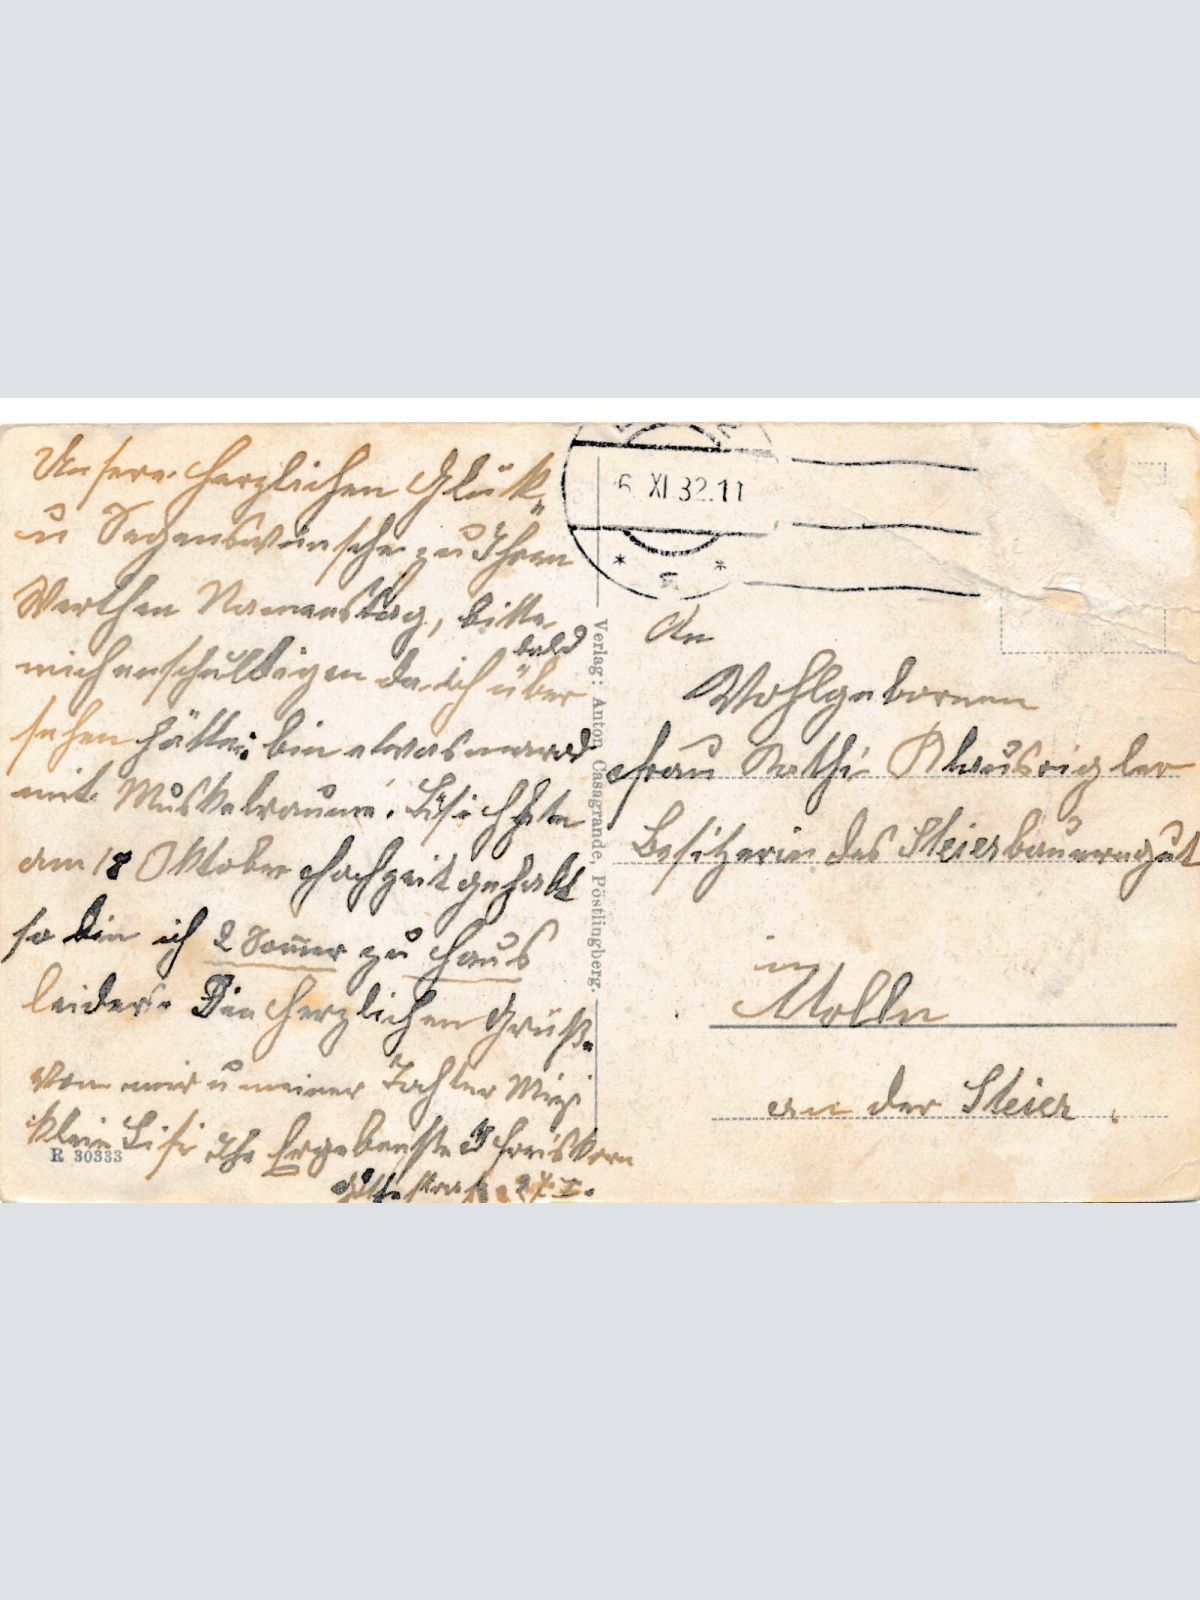 Unsere herzlichen Glük-
u Segenswünsche zu Ihren
Werthen Namenstag, bitte
mich enschuldigen da ich bald über
sehen hätte; bin etwas marod
mit Muskelraume. Lisi hate
am 18 Oktober Hochzeit gehabt
so bin ich 2 Sommer zu Haus
leider. Die Herzlichen Grüße
von mir u meiner Tochter Mizi
klein Lisi Ihr Ergebenste
R 30333
Verlag: Anton Casagrande, Pöstlingberg.
6. XI 32. 11
An
Wohlgebornen
Frau Kathi Klausrigler
Besitzerin des Steierbauerngut
in
Molln
an der Steier.